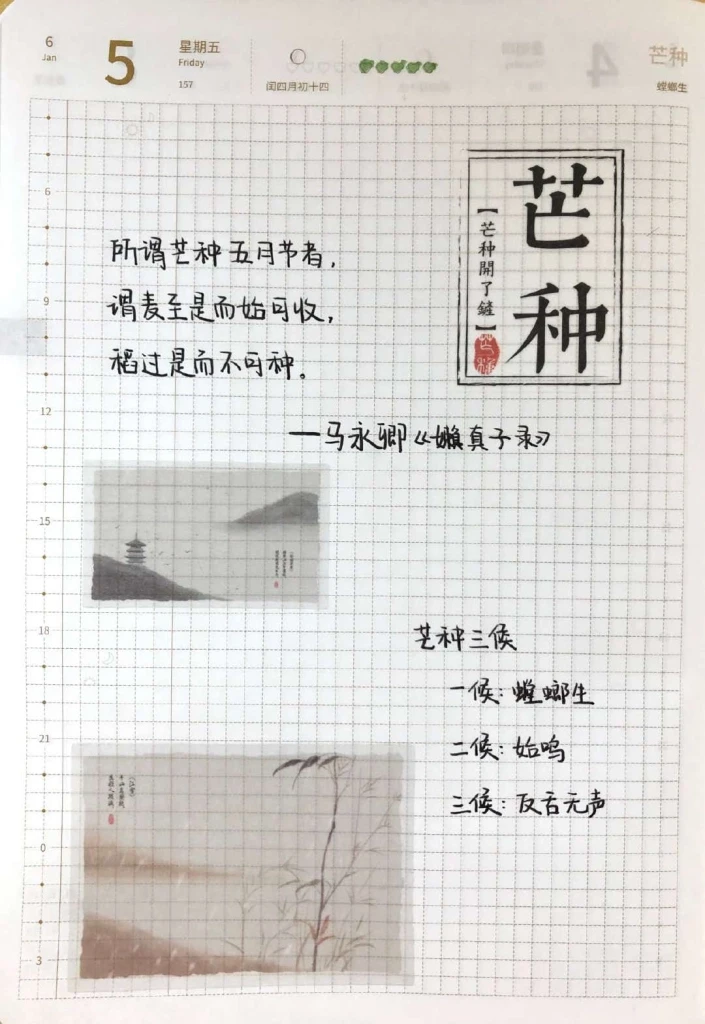 6
Jan
5
星期五
Friday
157
闰四月初十四
芒种
螳螂生
芒种
【芒种開了鏟】
芒种
所谓芒种五月节者，
谓麦至是而始可收，
稻过是而不可种。
—马永卿《懒真子录》
芒种三候
一候：螳螂生
二候：始鸣
三候：反舌无声
6
9
12
15
18
21
0
3